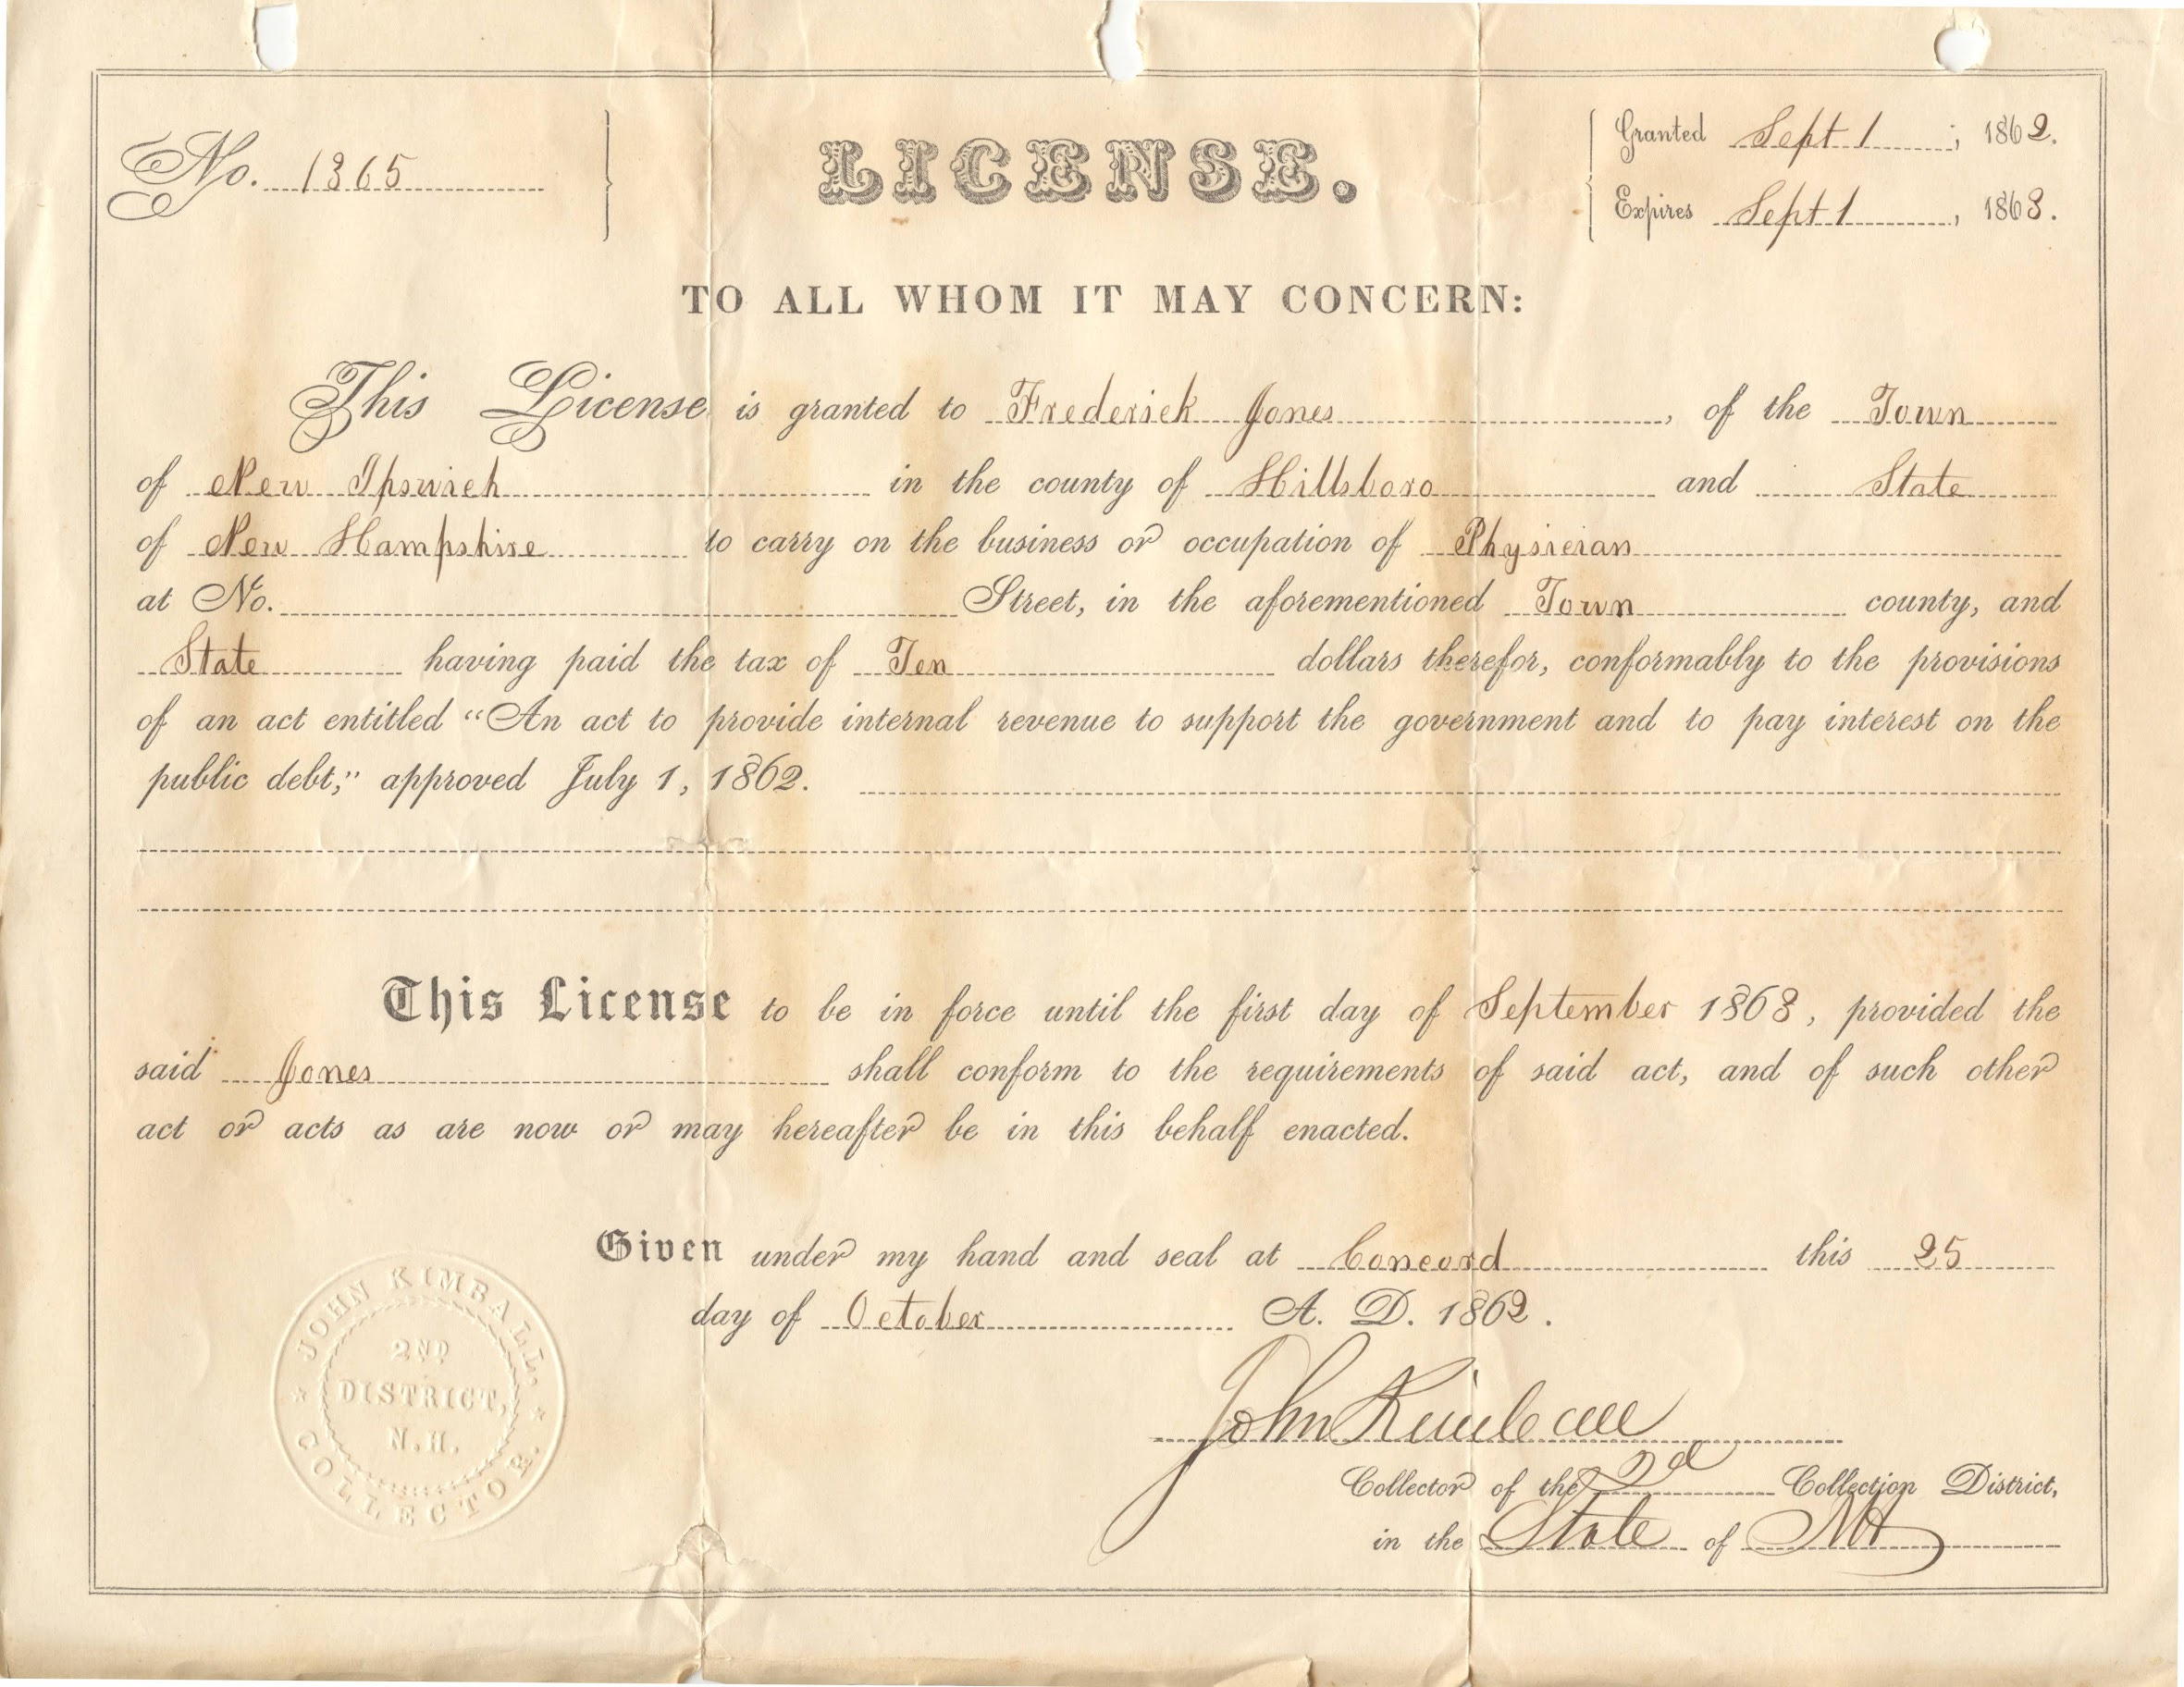 No. 1365
LICENSE.
Granted Sept 1, 1862.
Expires Sept 1, 1863.
TO ALL WHOM IT MAY CONCERN:
This License is granted to Frederick Jones, of the Town
of New Ipswich in the county of Hillsboro and State
of New Hampshire to carry on the business or occupation of Physician
at No. Street, in the aforementioned Town county, and
State having paid the tax of Ten dollars therefor, conformably to the provisions
of an act entitled “An act to provide internal revenue to support the government and to pay interest on the
public debt;” approved July 1, 1862.
This License to be in force until the first day of September 1863, provided the
said Jones shall conform to the requirements of said act, and of such other
act or acts as are now or may hereafter be in this behalf enacted.
Given under my hand and seal at Concord this 25
day of October A. D. 1862.
John Kimball
Collector of the 2d Collection District,
in the State of NH
JOHN KIMBALL.
2ND
DISTRICT,
N.H.
COLLECTOR.